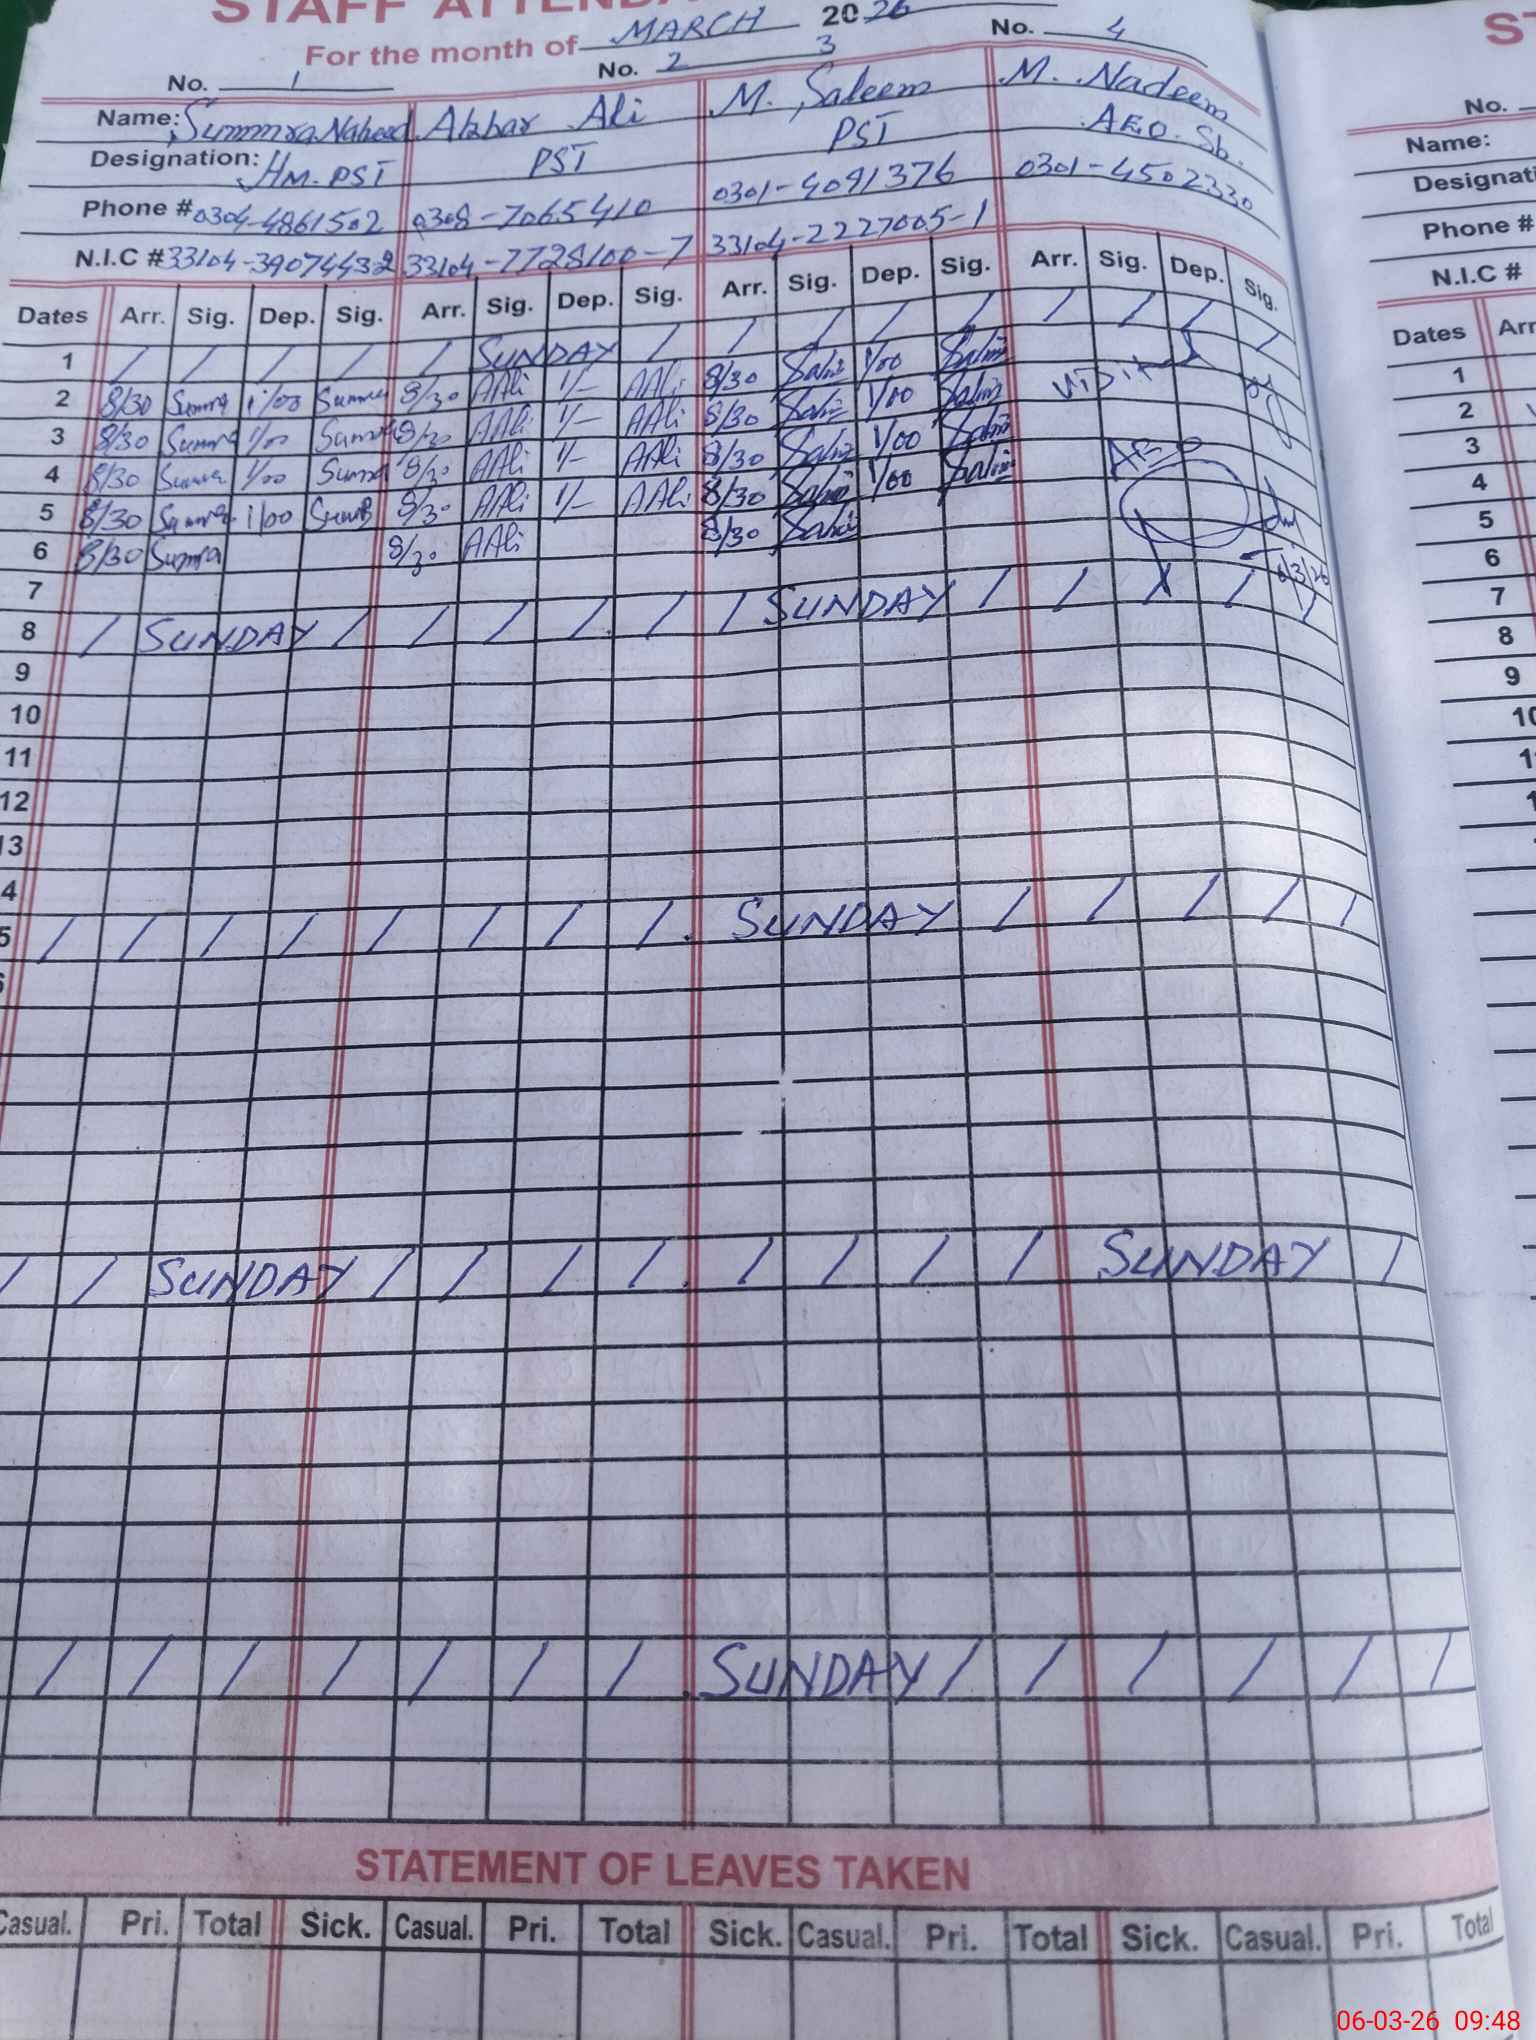 STAFF ATTENDA
For the month of MARCH 2026
No. 1 No. 2 3 No. 4
Name: Summra Naheed Akbar Ali M. Saleem M. Nadeem
Designation: HM. PST PST PST AEO. Sb.
Phone # 0304-4861502 0308-7065410 0301-4091376 0301-4502330
N.I.C # 33104-7728100-7 33104-2227005-1
Dates Arr. Sig. Dep. Sig. Arr. Sig. Dep. Sig. Arr. Sig. Dep. Sig. Arr. Sig. Dep. Sig.
1 / / / / / SUNDAY / / / / / / / / /
2 8/30 Sumra 1/00 Sumra 8/30 AAli 1/- AAli 8/30 Salim 1/00 Salim visited
3 8/30 Sumra 1/00 Sumra 8/30 AAli 1/- AAli 8/30 Salim 1/00 Salim
4 8/30 Sumra 1/00 Sumra 8/30 AAli 1/- AAli 8/30 Salim 1/00 Salim AEO
5 8/30 Sumra 1/00 Sumra 8/30 AAli 1/- AAli 8/30 Salim 1/00 Salim
6 8/30 Sumra 8/30 AAli 8/30 Salim 6/3/26
7
8 / SUNDAY / / / / / / SUNDAY / / / / /
9
10
11
12
13
4
5 / / / / / / / / SUNDAY / / / / /
/ / SUNDAY / / / / / / / / SUNDAY /
/ / / / / / / SUNDAY / / / / / /
STATEMENT OF LEAVES TAKEN
Casual. Pri. Total Sick. Casual. Pri. Total Sick. Casual. Pri. Total Sick. Casual. Pri. Total
ST
No.
Name:
Designati
Phone #
N.I.C #
Dates Arr
1
2
3
4
5
6
7
8
9
10
1
1
06-03-26 09:48